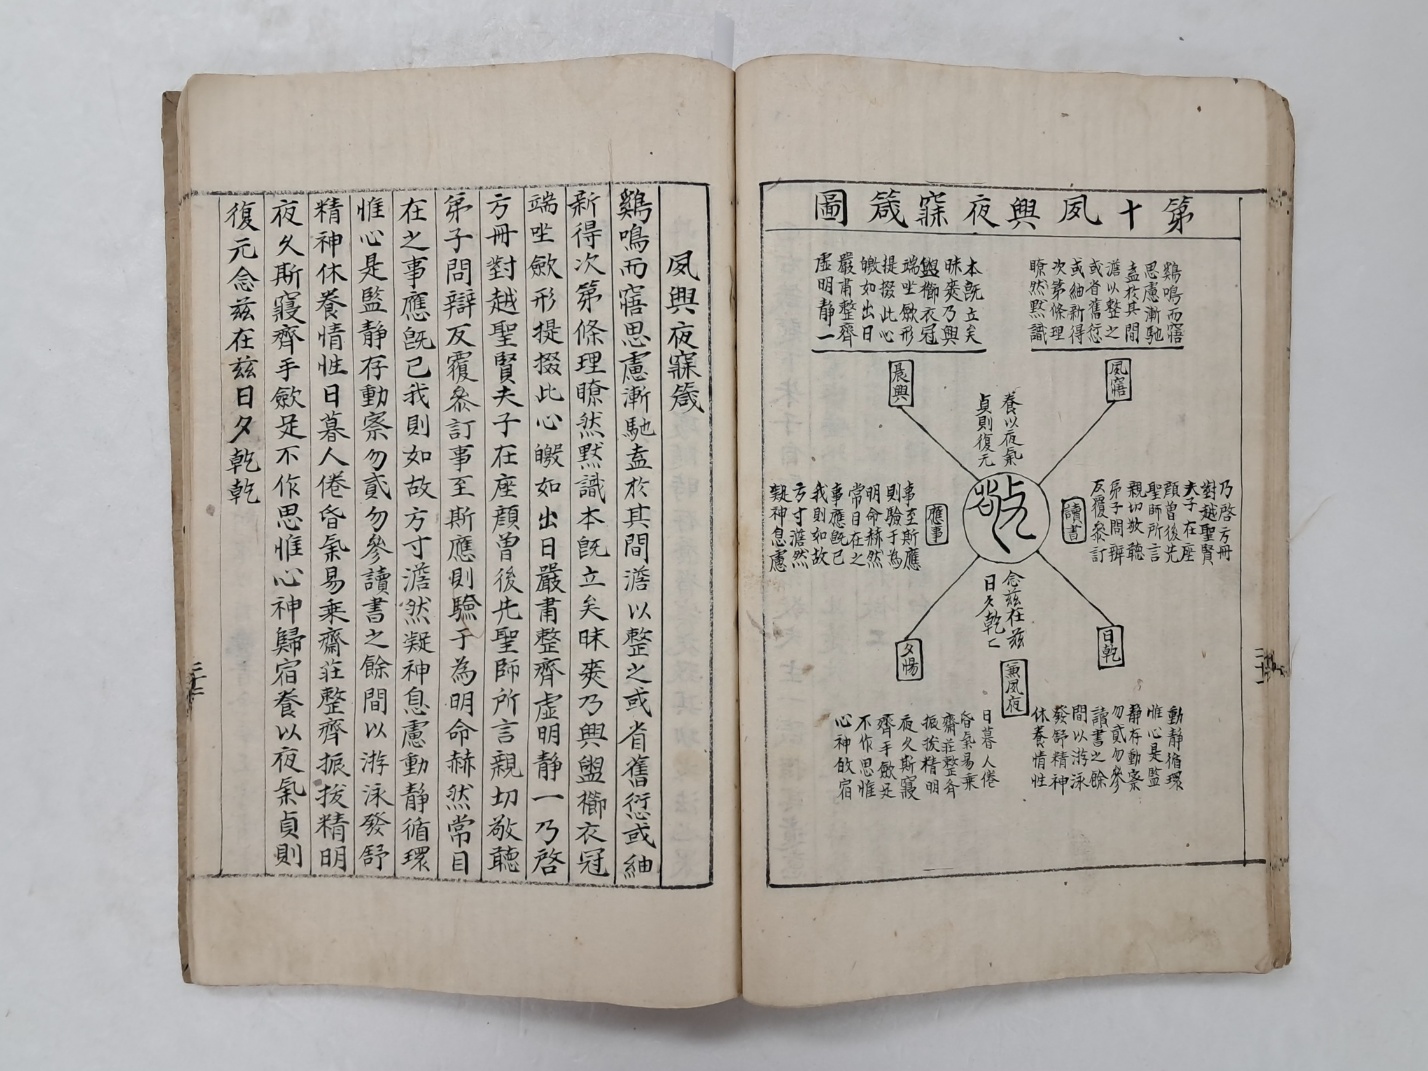 第十夙興夜寐箴圖
鷄鳴而寤
思慮漸馳
盍於其間
澹以整之
或省舊愆
或紬新得
次第條理
瞭然默識
夙寤
本旣立矣
昧爽乃興
盥櫛衣冠
端坐歛形
提掇此心
皦如出日
嚴肅整齊
虛明靜一
晨興
養以夜氣
貞則復元
敬
讀書
乃啓方冊
對越聖賢
夫子在座
顔曾後先
聖師所言
親切敬聽
弟子問辨
反覆參訂
應事
事至斯應
則驗于為
明命赫然
常目在之
事應旣已
我則如故
方寸澹然
凝神息慮
念茲在玆
日夕乾〻
日乾
動靜循環
惟心是監
靜存動察
勿貳勿參
讀書之餘
間以游泳
發舒精神
休養情性
兼夙夜
夕惕
日暮人倦
昏氣易乘
齋莊整齊
振拔精明
夜久斯寢
齊手歛足
不作思惟
心神敀宿
夙興夜寐箴
鷄鳴而寤思慮漸馳盍於其間澹以整之或省舊愆或紬
新得次第條理瞭然默識本旣立矣昧爽乃興盥櫛衣冠
端坐歛形提掇此心皦如出日嚴肅整齊虛明靜一乃啓
方冊對越聖賢夫子在座顔曾後先聖師所言親切敬聽
弟子問辯反覆參訂事至斯應則驗于為明命赫然常目
在之事應旣已我則如故方寸澹然凝神息慮動靜循環
惟心是監靜存動察勿貳勿參讀書之餘間以游泳發舒
精神休養情性日暮人倦昏氣易乘齋莊整齊振拔精明
夜久斯寢齊手歛足不作思惟心神歸宿養以夜氣貞則
復元念玆在玆日夕乾乾